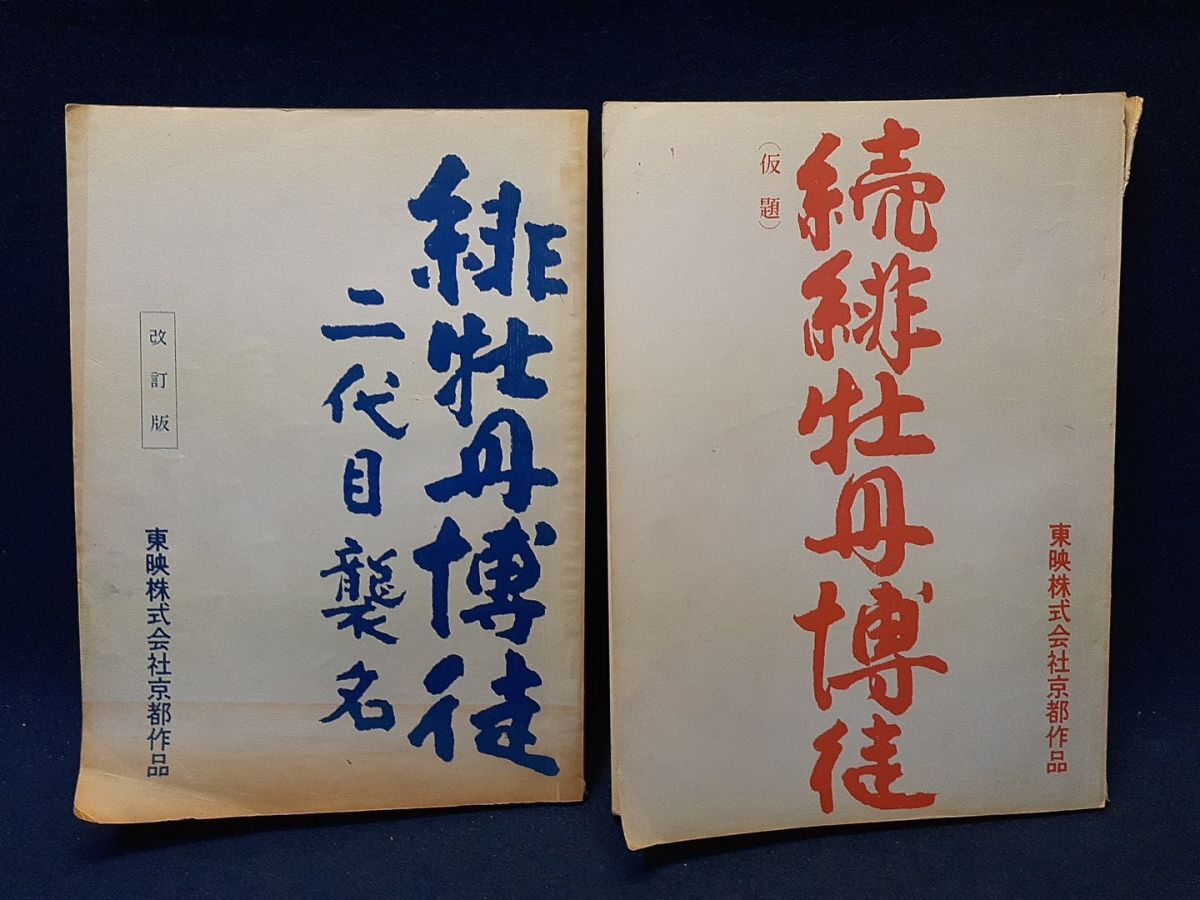 緋牡丹博徒
二代目襲名
改訂版
東映株式会社京都作品
続緋牡丹博徒
(仮題)
東映株式会社京都作品